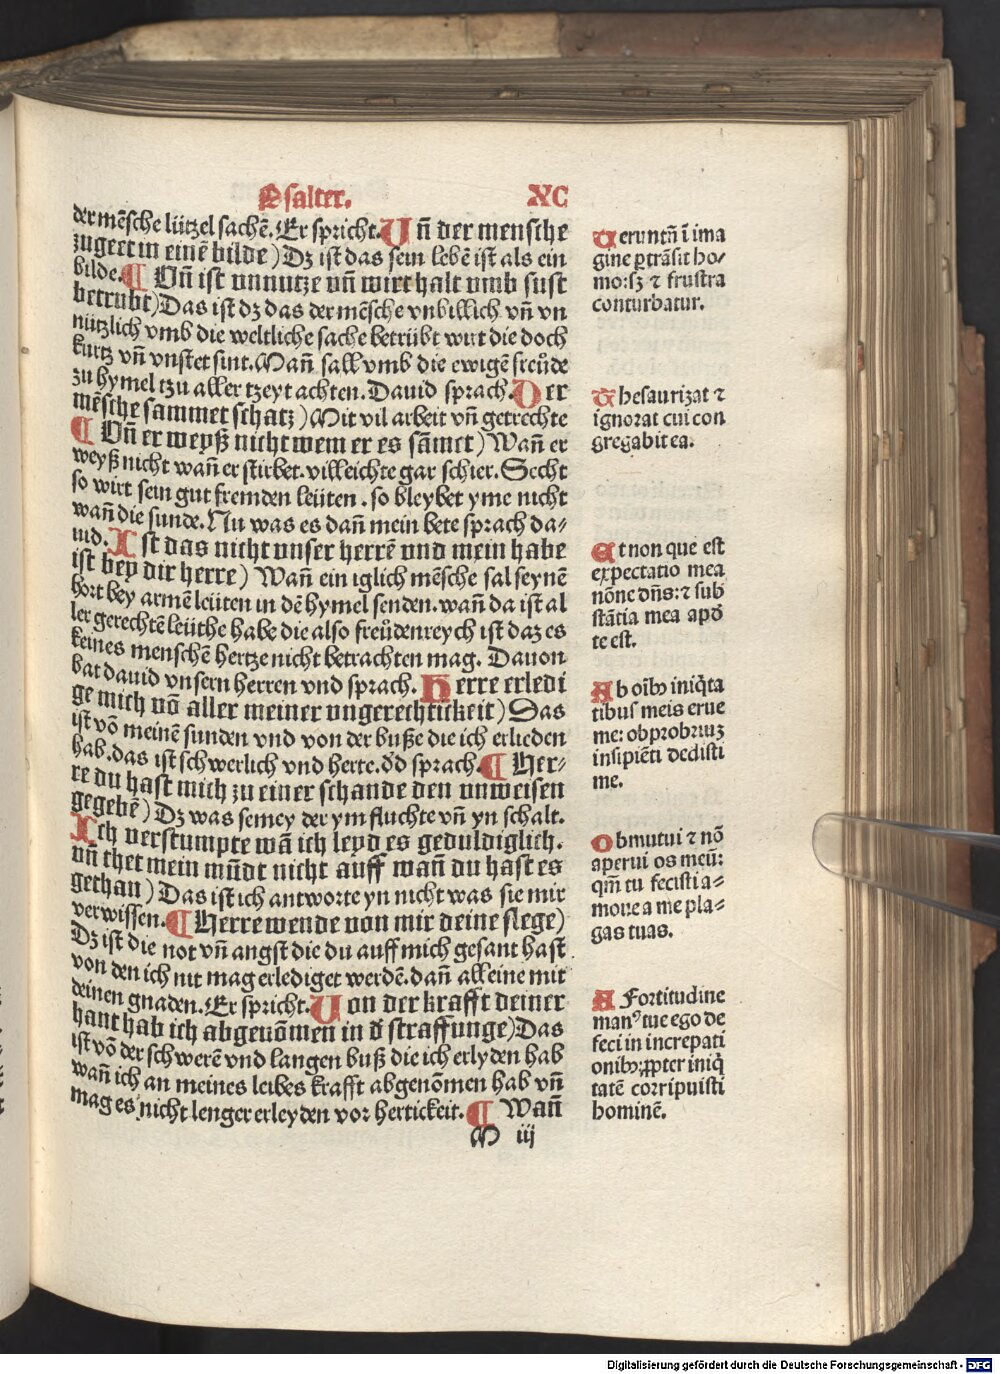 Psalter. XC
der mẽsche lützel sachẽ. Er spricht. Un̄ der mensche
zugeet in einẽ bilde) Dz ist das sein lebẽ ist als ein
bilde. ¶ Vn̄ ist vnnutze vn̄ wirt halt vmb sust
betrubt) Das ist dz das der mẽsche vnbillich vn̄ vn
nützlich vmb die weltliche sache betrübt wirt die doch
kurtz vn̄ vnstet sint. Man̄ sall vmb die ewigẽ freůde
zu hymel tzu aller tzeyt achten. Dauid sprach. Der
mẽsche sammet schatz) Mit vil arbeit vn̄ getrechte
¶ Vn̄ er weyß nicht wem er es sãmet) Wan̄ er
weyß nicht wan̄ er stirbet. villeichte gar schier. Secht
so wirt sein gut fremden leüten. so bleybet yme nicht
wan̄ die sunde. Nu was es dan̄ mein bete sprach da-
uid. Ist das nicht vnser herrẽ vnd mein habe
ist bey dir herre) Wan̄ ein iglich mẽsche sal seynẽ
hort bey armẽ leüten in dẽ hymel senden. wan̄ da ist al
ler gerechtẽ leüthe habe die also freůdenreych ist daz es
keines menschẽ hertze nicht betrachten mag. Dauon
bat dauid vnsern herren vnd sprach. Herre erledi
ge mich võ aller meiner vngerechtickeit) Das
ist võ meinẽ sunden vnd von der buße die ich erlieden
hab. das ist schwerlich vnd herte. d̕d sprach. ¶ Her-
re du hast mich zu einer schande den vnweisen
gegebẽ) Dz was semey der ym fluchte vn̄ yn schalt.
Ich verstumpte wã ich leyd es geduldiglich.
vn̄ thet mein mũdt nicht auff wan̄ du hast es
gethan) Das ist ich antworte yn nicht was sie mir
verwissen. ¶ Herre wende von mir deine slege)
Dz ist die not vn̄ angst die du auff mich gesant hast
von den ich nit mag erlediget werdẽ. dan̄ alleine mit
deinen gnaden. Er spricht. Von der krafft deiner
hant hab ich abgenõmen in d̕ straffunge) Das
ist võ der schwerẽ vnd langen buß die ich erlyden hab
wan̄ ich an meines leibes krafft abgenõmen hab vn̄
mag es nicht lenger erleyden vor hertickeit. ¶ Wan̄
M iij
Ueruntñ ĩ ima
gine ꝑtrãsit ho-
mo: sꝫ ⁊ frustra
conturbatur.
Thesaurizat ⁊
ignorat cui con
gregabit ea.
Et non que est
expectatio mea
nõne dñs: ⁊ sub
stãtia mea apd̕
te est.
Ab oĩbꝰ iniq̃ta
tibus meis erue
me: obprobriuꝫ
insipiẽti dedisti
me.
Obmutui ⁊ nõ
aperui os meũ:
qm̃ tu fecisti a-
moue a me pla-
gas tuas.
A Fortitudine
manꝰ tue ego de
feci in increpati
onibꝫ: ꝓpter iniq̃
tatẽ corripuisti
hominẽ.
Digitalisierung gefördert durch die Deutsche Forschungsgemeinschaft - DFG